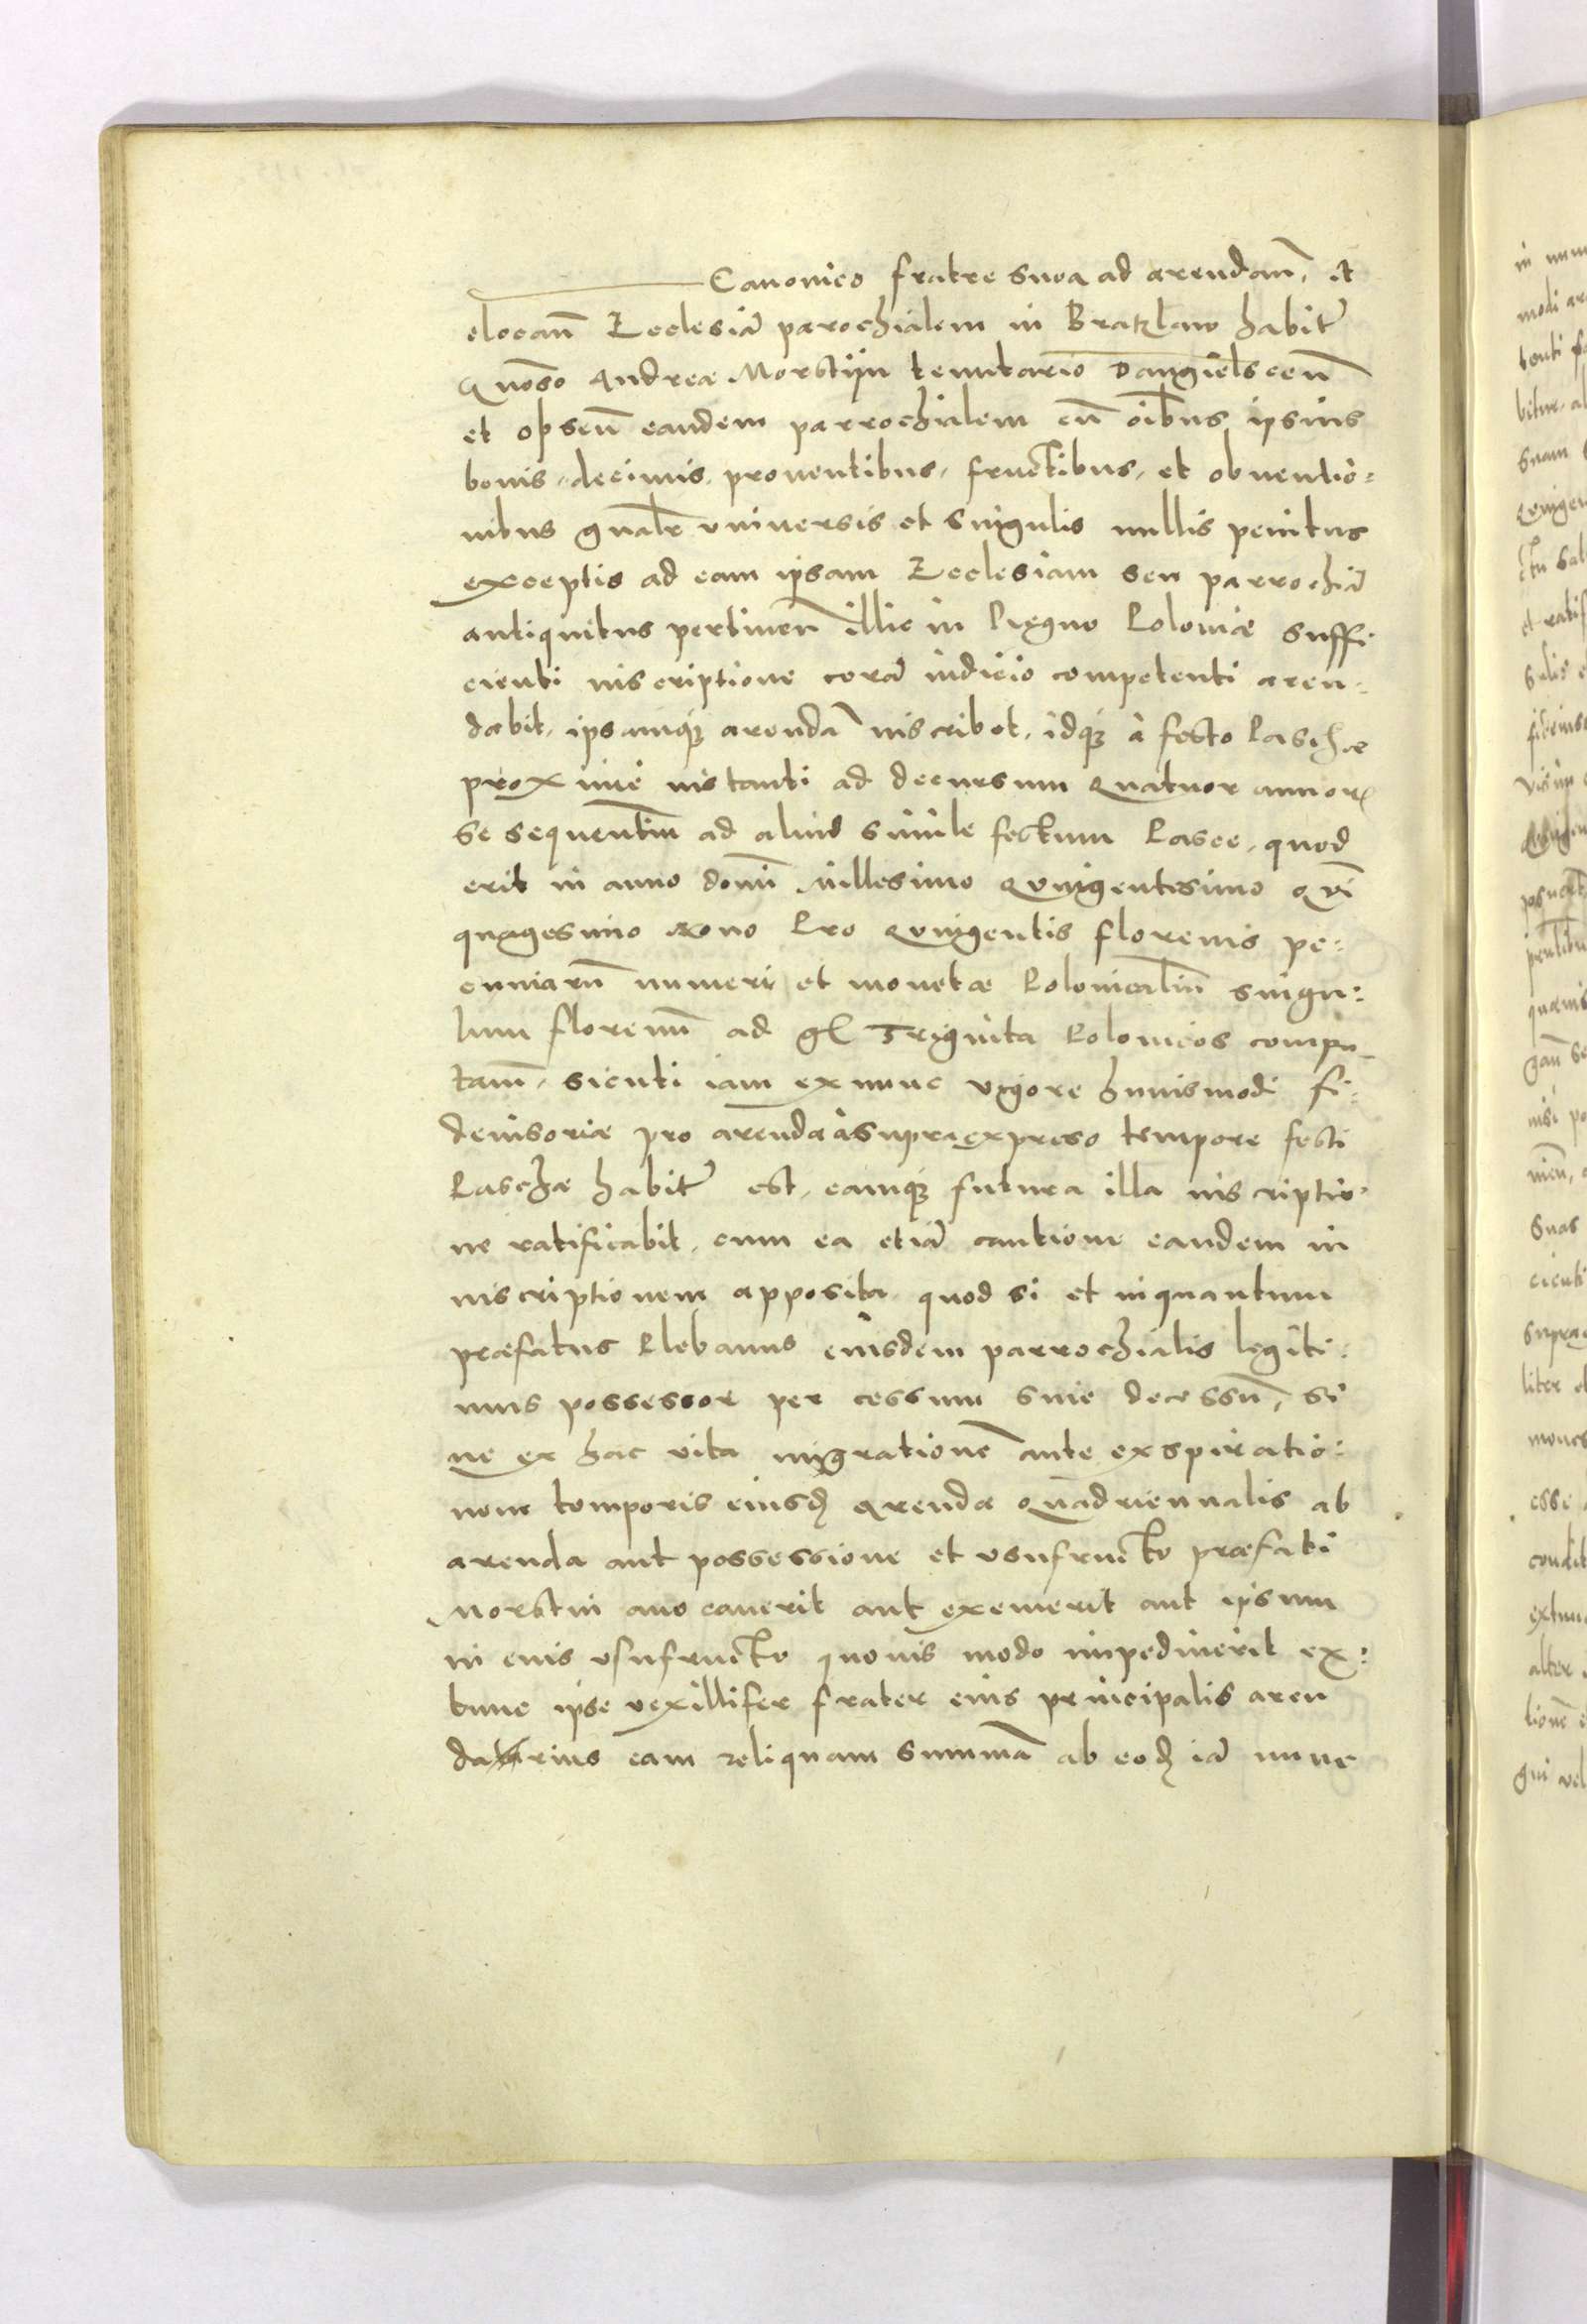 Canonico fratre suo a ad arendam̅, et
elocan̅ Ecclesiā parochialem in Bratzlaw habiter̅
Gn̅oso Andreæ Morstijn tenutario Dangielscen̅
et obsen̅ eandem parrochialem cu̅ oi̅bus ipsius
bonis, decimis, proventibus, fructibus, et obventio:
nibus gn̅alr̅ vniversis et singulis nullis penitus
exceptis ad eam ipsam Ecclesiam seu parrochiā
antiquitus pertinen̅ illic in Regno Poloniæ suffi:
cienti inscriptione corā iudicio competenti aren:
dabit, ipsamq̃ arendā inscribet, idq̃ à festo Paschæ
proxime instanti ad decursum Quatuor annor̃
se sequentiu̅ ad aliud simile festum Pasce, quod
erit in anno domi̅ Millesimo Quingentesimo Qui̅
quagesimo Nono Pro Quingentis florenis pe:
cuniaru̅ numeri et monetæ Polonicaliu̅ singu:
lum florenu̅ ad gl̃ Triginta Polonicos compu-
tam̅, sicuti iam ex nunc vigore huiusmodi fi:
deiusoriæ pro arenda à supra expreso tempore festi
Paschæ habiter̅ est, eamq̃ futura illa inscriptio:
ne ratificabit, cum ea etiā cautione eandem in
inscriptionem apposita quod si et inquantum
præfatus Plebanus eiusdem parrochialis legiti:
mus possessor per cessum siue decessu̅, si
ue ex hac vita migratione̅ ante exspiratio:
nem temporis eiusd̃ arendæ Quadriennalis ab
arenda aut possessione et vsufructo præfati
Morstin auocauerit aut exemerit aut ipsum
in euis vsufructo quouis modo impediuerit ex:
tunc ipse vexillifer frater eius principalis aren
datarius eam reliquam summā ab eod̃ iā nunc